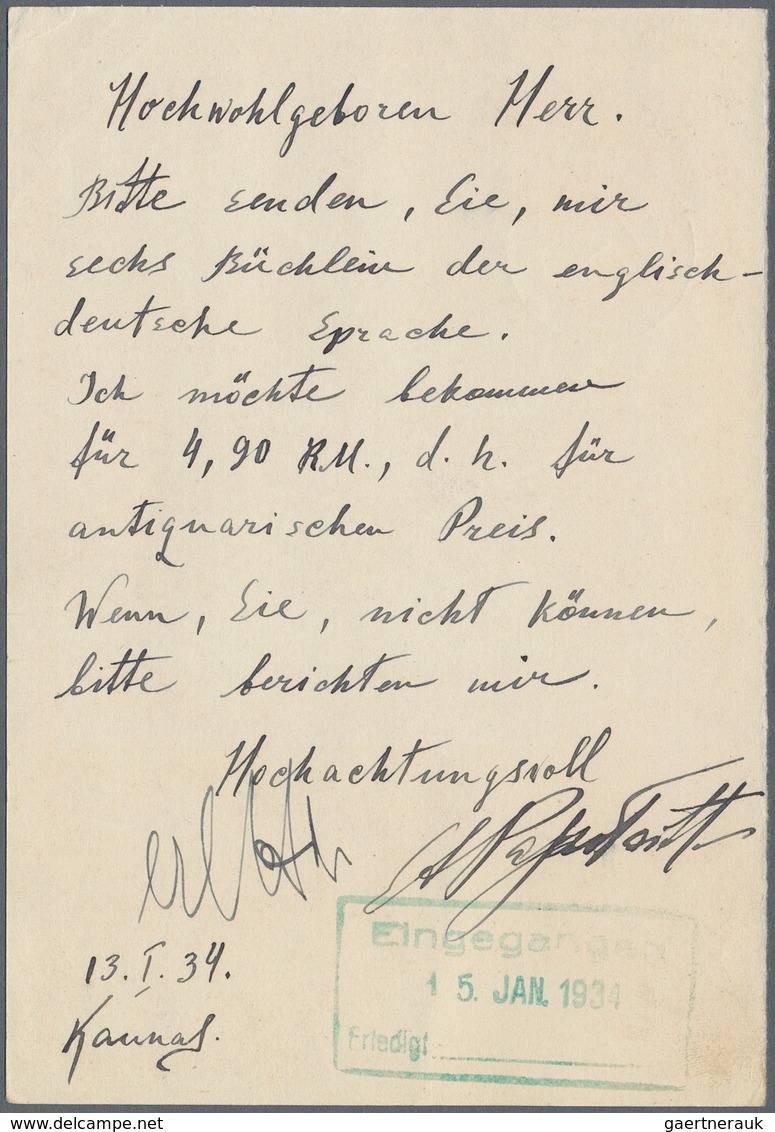 Hochwohlgeboren Herr.
Bitte senden, Sie, mir
sechs Büchlein der englisch-
deutsche Sprache.
Ich möchte bekommen
für 4,90 RM., d. h. für
antiquarischen Preis.
Wenn, Sie, nicht können,
bitte berichten mir.
Hochachtungsvoll
13. I. 34.
Kaunas.
Eingegangen
15. JAN. 1934
Erledigt
gaertnerauk